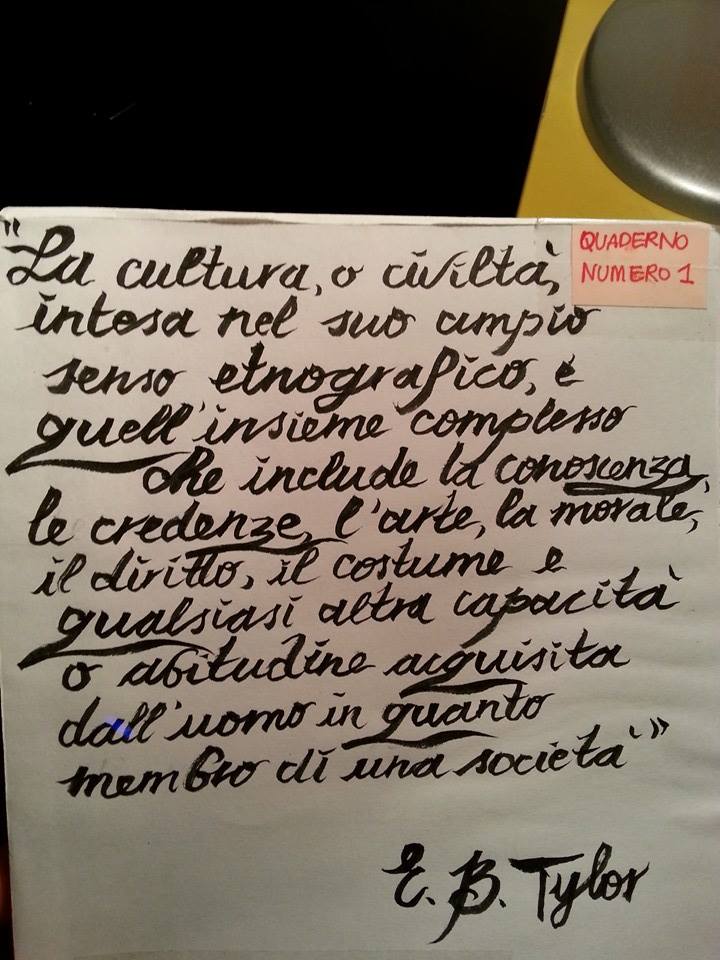 "La cultura, o civiltà,
intesa nel suo ampio
senso etnografico, è
quell'insieme complesso
che include la conoscenza,
le credenze, l'arte, la morale,
il diritto, il costume e
qualsiasi altra capacità
o abitudine acquisita
dall'uomo in quanto
membro di una società"
E. B. Tylor
QUADERNO
NUMERO 1